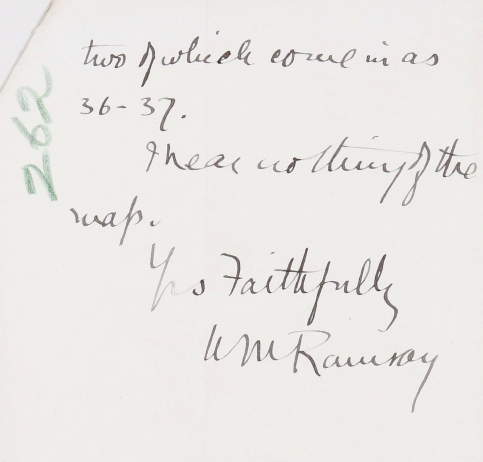 two of which come in as
36-37.
I hear nothing of the
map.
Yrs Faithfully
WM Ramsay
262